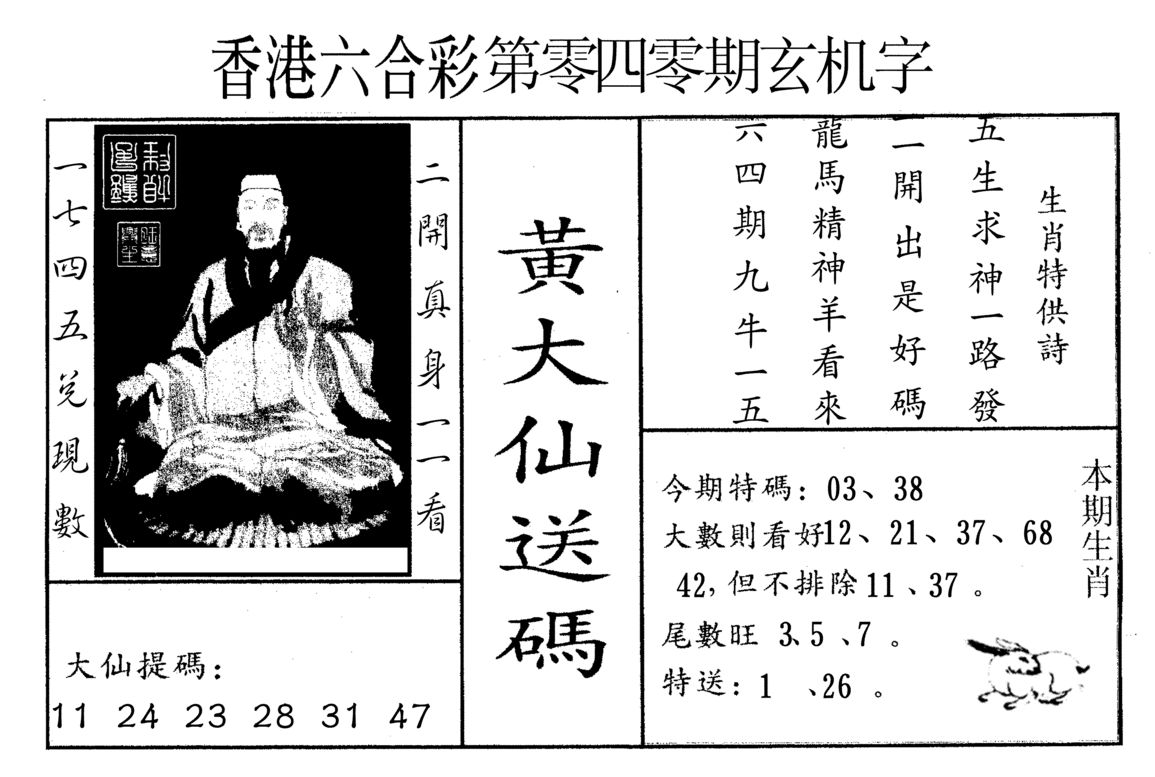 香港六合彩第零四零期玄机字
二開真身一一看
一七四五兑現數
黃大仙送碼
生肖特供詩
五生求神一路發
二開出是好碼
龍馬精神羊看來
六四期九牛一五
大仙提碼：
11 24 23 28 31 47
本期生肖
今期特碼：03、38
大數則看好12、21、37、68
42，但不排除11、37。
尾數旺 3、5、7。
特送：1、26。